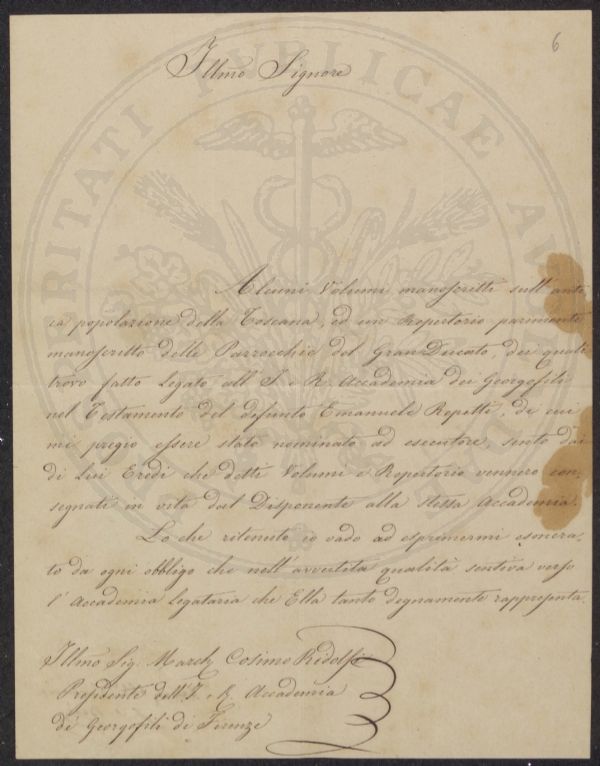 6
Illmo Signore
Alcuni Volumi manoscritti sull'anti
ca popolazione della Toscana, ed un Repertorio parimente
manoscritto delle Parrocchie del Gran Ducato, dei quali
trovo fatto Legato all'I. e R. Accademia dei Georgofili
nel Testamento del defunto Emanuele Repetti, di cui
mi pregio essere stato nominato ad esecutore, sento dai
di Lui Eredi che detti Volumi e Repertorio vennero con,
segnati in vita dal Disponente alla stessa Accademia.
Lo che ritenuto io vado ad esprimermi esonera,
to da ogni obbligo che nell'avvertita qualità sentiva verso
l'Accademia Legataria che Ella tanto degnamente rappresenta.
Illmo Sig. March. Cosimo Ridolfi
Presidente dell'I. e R. Accademia
dei Georgofili di Firenze
PUBLICAE